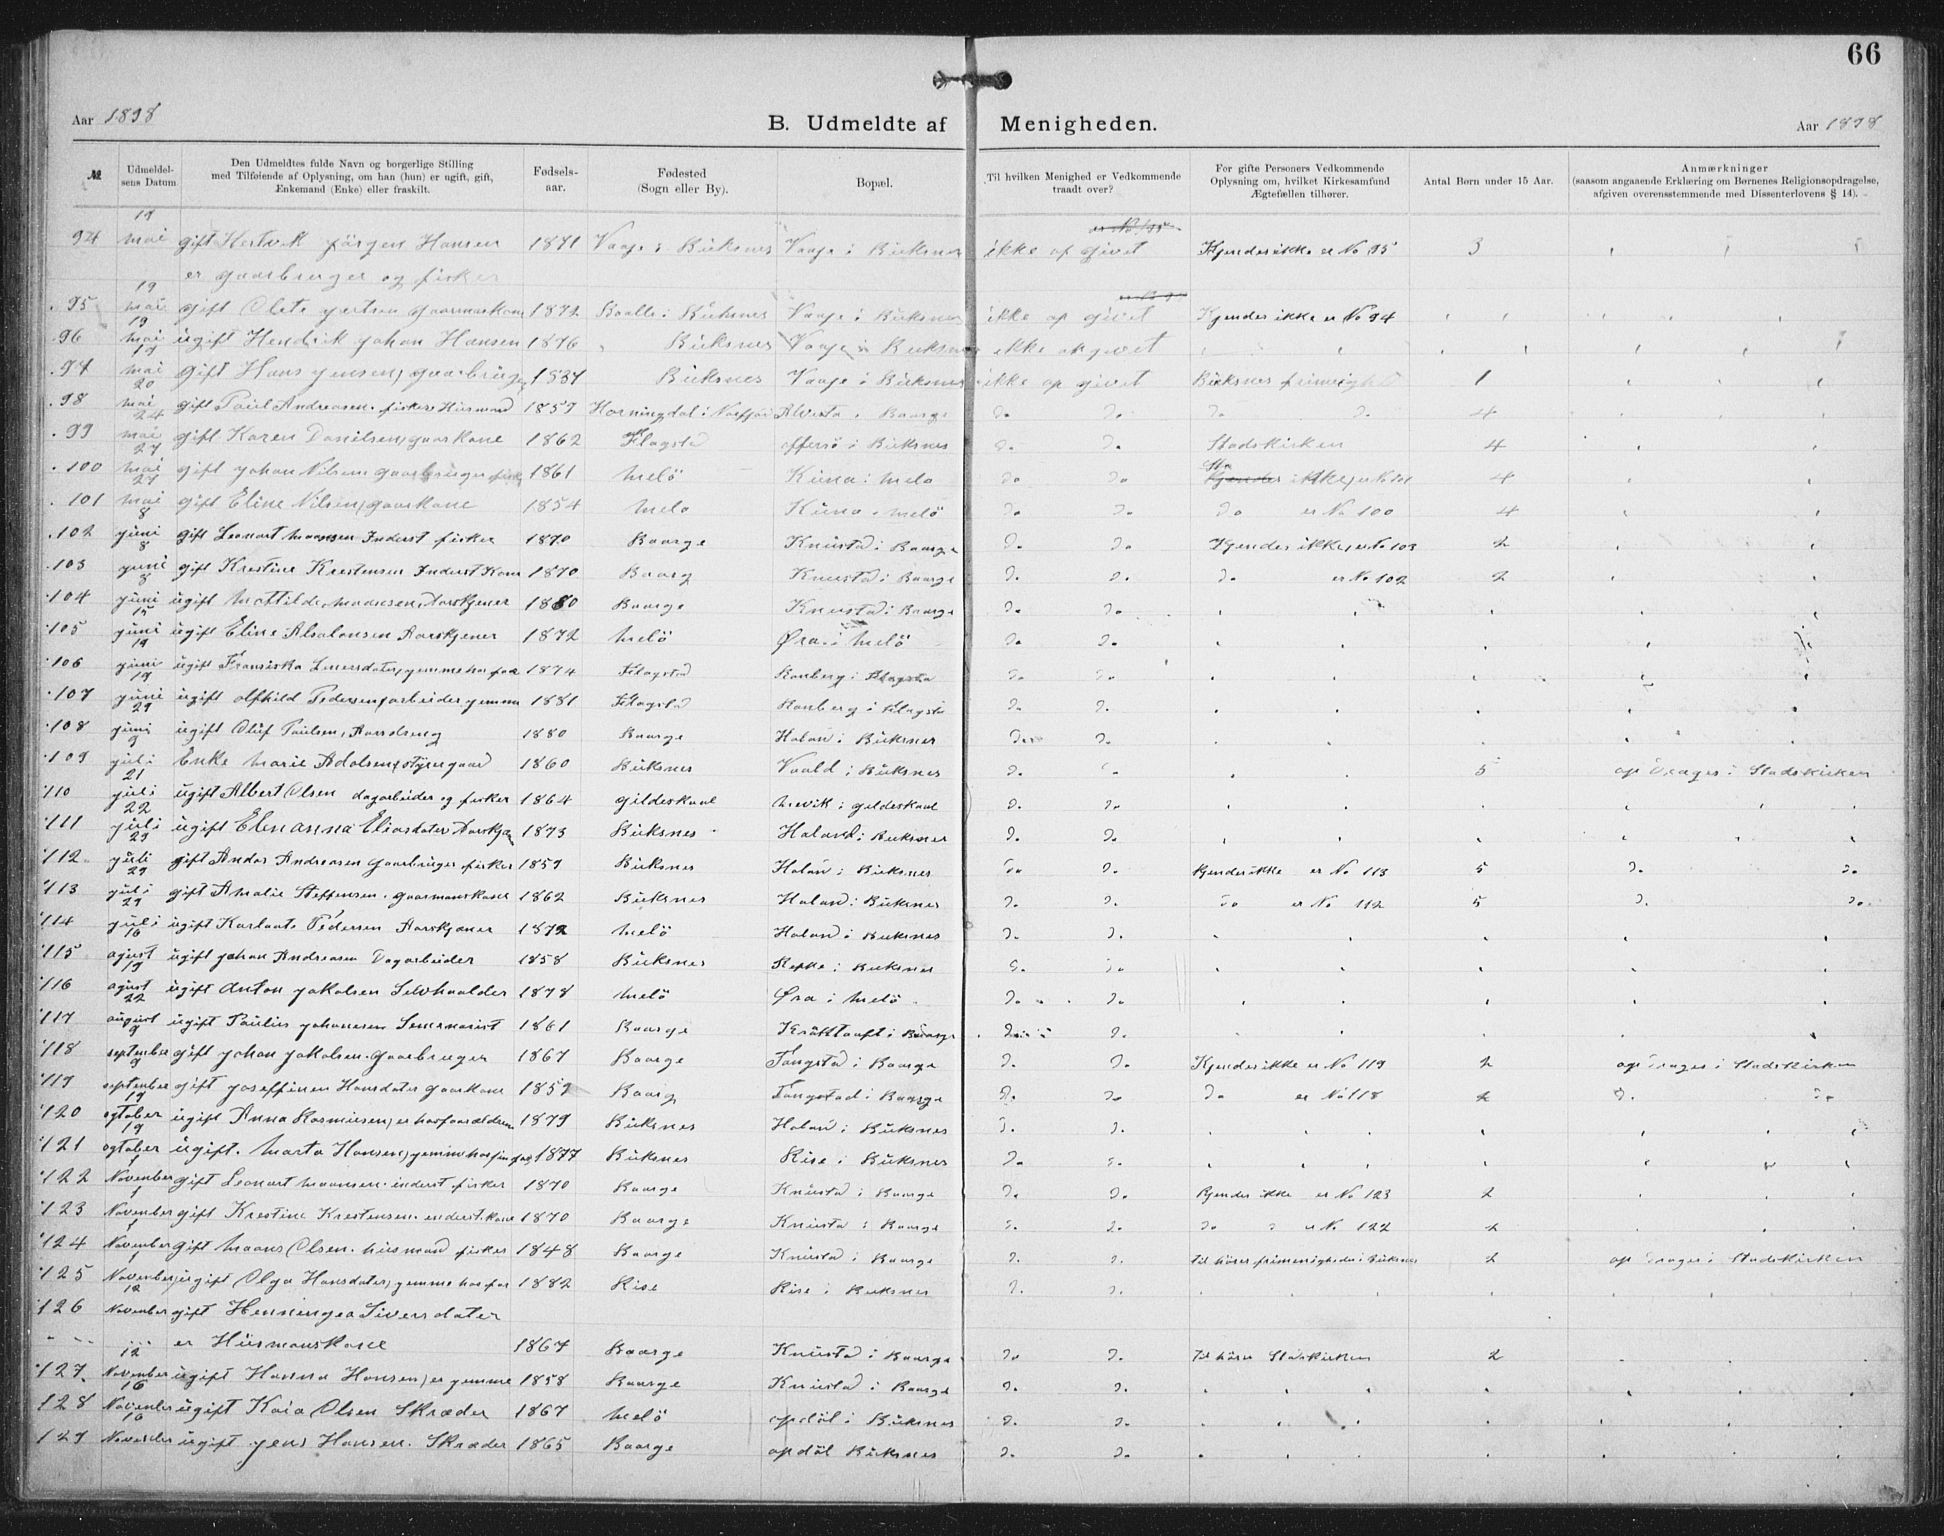 66
Aar 1898
B. Udmeldte af Menigheden.
Aar 1898
№
Udmeldelsens Datum
Den Udmeldtes fulde Navn og borgerlige Stilling med Tilføiende af Oplysning, om han (hun) er ugift, gift, Enkemand (Enke) eller fraskilt.
Fødselsaar.
Fødested (Sogn eller By).
Bopæl.
Til hvilken Menighed er Vedkommende traadt over?
For gifte Personers Vedkommende Oplysning om, hvilket Kirkesamfund Ægtefællen tilhører.
Antal Børn under 15 Aar.
Anmærkninger (saasom angaaende Erklæring om Børnenes Religionsopdragelse, afgiven overensstemmende med Dissenterlovens § 14).
94 19 mai gift Hertvik Jörgen Hansen 1871 Vaaje i Buksnes Vaaje i Buksnes ikke op givet Kjendes ikke er No 95 3
er gaarbruger og fisker
95 19 mai gift Olete gaarmaskone 1872 Buksnes Vaaje i Buksnes ikke op givet Kjendes ikke er No 94
96 19 mai ugift Hendrik Johan Hansen 1876 Buksnes Vaaje i Buksnes ikke opgivet
97 19 mai gift Hans Jensen, gaarbruger 1837 Buksnes Vaaje i Buksnes ikke op givet Buksnes 1
98 20 mai gift Paul Andreasen. fisker Husmand 1859 i Baarge Do Do Do Do 4
99 24 mai gift Karen Danilsen, gaarkone 1862 Flagstd offersö i Buksnes Do Do Stadskirken 4
100 27 mai gift Johan Nilsen gaarbruger fisk 1861 Melö Kuna i Melo Do Do ikke, er No 101 4
101 27 mai gift Eline Nilsen, gaarkone 1854 Melo Kuna i Melö Do Do Do er No 100 4
102 8 juni gift Leonart Maansen Inderst fisker 1870 Baarge Knustad i Baarge Do Do Kjendes ikke, er No 103 2
103 8 juni gift Krestine Krestensen Inderst Kone 1870 Baarg Knustad i Baarge Do Do Do er No 102 2
104 8 juni ugift Mattilde Maansen, Aarskjener 1880 Baarge Knustad i Baarge Do Do
105 15 juni ugift Eline Absalonsen Aarskjener 1872 Melö Øra i Melö Do Do
106 19 juni ugift Fransiska gemme hos faar 1874 Flagstad Ranberg i Flagsta Do Do
107 19 juni ugift olfhild Pedersen, arbeider gemme 1881 Flagsta Ranberg i Flagsta Do Do
108 29 juni ugift Oluf Paulsen, Aarsdreng 1880 Baarge Haland i Buksnes Do Do
109 9 juli Enke Marie Adolsen, styrer gaard 1860 Buksnes Vaald i Buksnes Do Do 5 op Drages i Stadskirken
110 21 juli ugift Albert Olsen dagarbeider og fisker 1864 gildeskaal Mevik i gildeskaal Do Do
111 22 juli ugift Elenanna Eliasdater Aarskjæ 1873 Buksnes Haland i Buksnes Do Do
112 29 juli gift Andor Andreasen gaarbruger fisker 1859 Buksnes Haland i Buksnes Do Do Kjendes ikke er No 113 5 Do Do
113 29 juli gift Amalie Steffensen. gaarmanskone 1862 Buksnes Haland i Buksnes Do Do Do er No 112 5 Do Do
114 29 juli ugift Karlaate Pedersen Aarskjæner 1872 Melö Haland i Buksnes Do Do
115 16 agust ugift Johan Andreasen Dagarbeider 1858 Buksnes Repke i Buksnes Do Do
116 19 agust ugift Anton Jakobsen Selvhaalder 1878 Melö Øra i Melö Do Do
117 22 august ugift Paulus Johanesen Semenarist 1861 Baarge i Baarge Do Do
118 9 september gift Johan Jakobsen. gaarbruger 1867 Baarge Tangstad i Baarge Do Do Kjendes ikke er No 119 2 op Drages i Stadskirken
119 9 september gift Joseffinen Hansdater gaarkone 1859 Baarg Tangstad i Baarge Do Do Do er No 118 2 Do Do
120 19 ogtober ugift Anna Rasmusen, er hos foraeldrene 1879 Buksnes Haland i Buksnes Do Do
121 19 ogtober ugift. Marta Hansen, gemme hos sin far 1877 Buksnes Rise i Buksnes Do Do
122 1 November gift Leonart Maansen. inderst fisker 1870 Baarge Knusta i Baarge Do Do Kjendes ikke er No 123 2
123 1 November gift Krestine Krestensen. inderst. kone 1870 Baarge Knusta i Baarge Do Do Do er No 122 2
124 1 November gift Maans Olsen. husmand fisker 1848 Baarge Knusta i Baarge Do Do Til hører frimenigheden i Buksnes 2 op Drages i Stadskirken
125 1 November, ugift Olga Hansdater, gemme hos far 1882 Rise Rise i Buksnes Do Do
126 12 November gift Henningea Siversdater
er Husmanskone 1867 Baarge Knusta i Baarge Do Do Til hører Stadskirken 2
127 12 November ugift Hanna Hansen, er gemme 1858 Baarge Knusta i Baarge Do Do
128 16 November ugift Kaia Olsen Skræder 1867 Melö opdöl i Buksnes Do Do
129 16 November ugift Jens Hansen. Skræder 1865 Baarge opdöl Buksnes Do Do